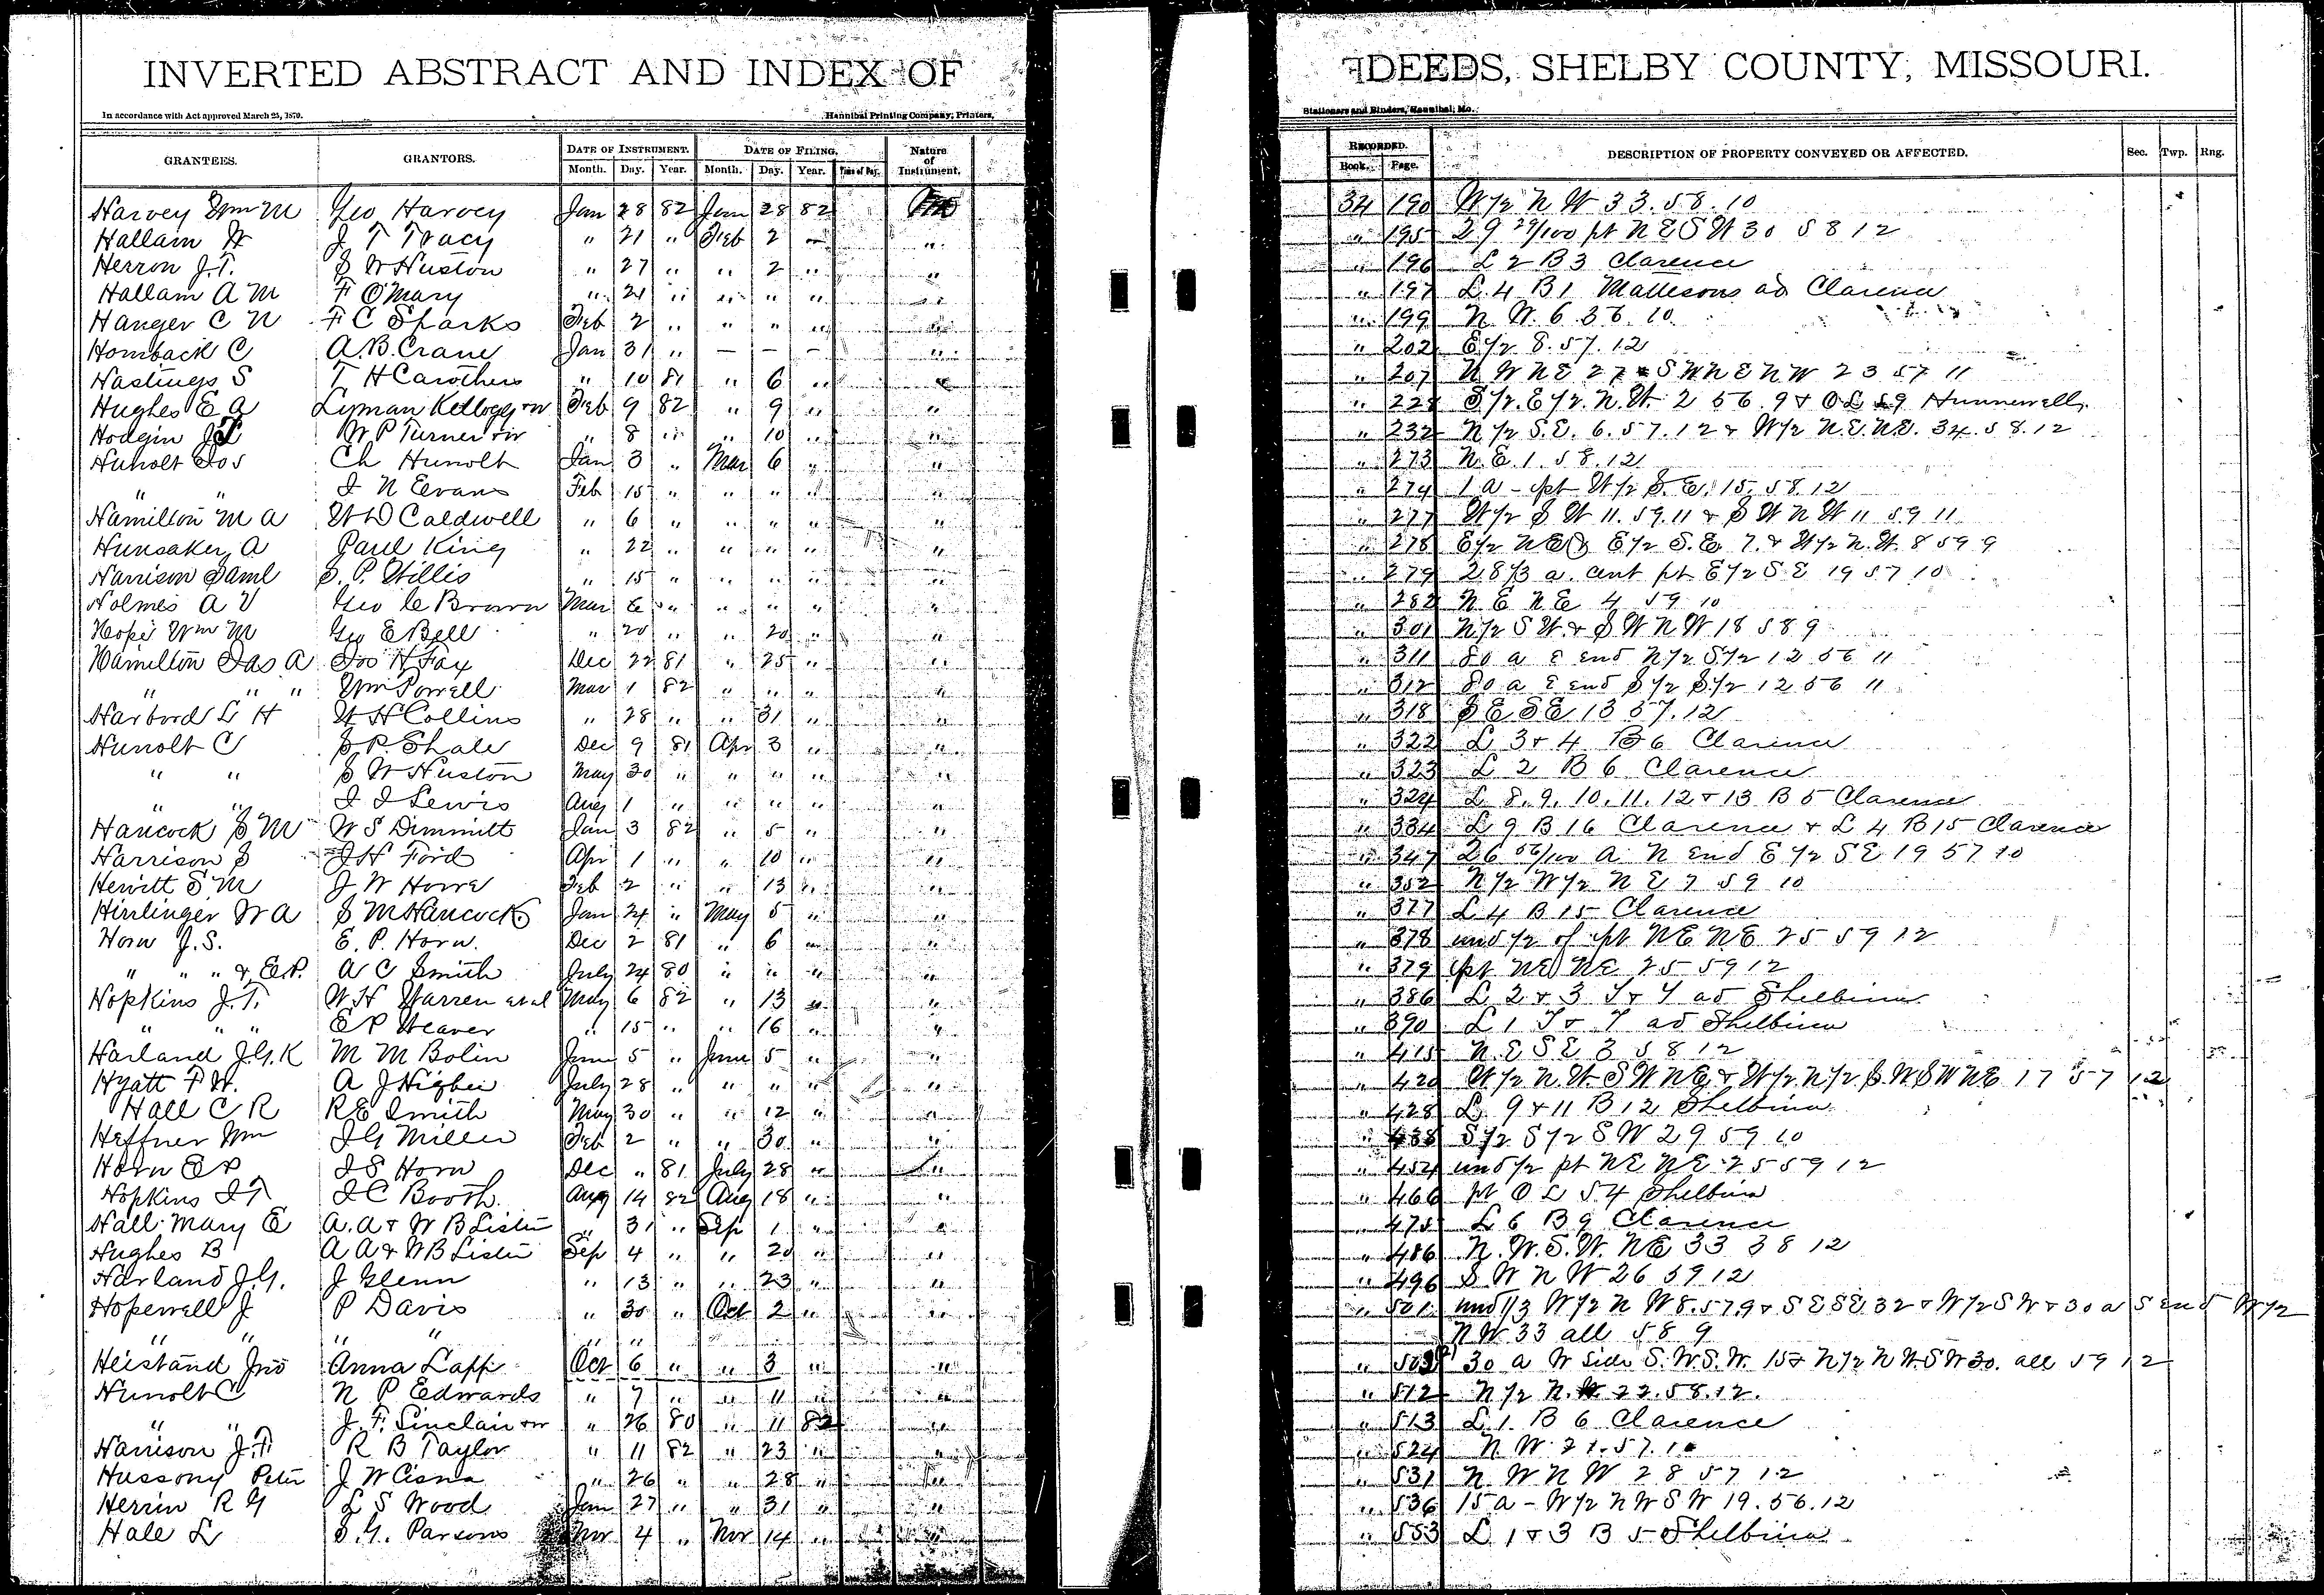 INVERTED ABSTRACT AND INDEX OF DEEDS, SHELBY COUNTY, MISSOURI.
In accordance with Act approved March 25, 1879. Hannibal Printing Company, Printers, Stationers and Binders, Hannibal, Mo.
GRANTEES. GRANTORS. DATE OF INSTRUMENT. DATE OF FILING. Nature of Instrument. RECORDED. DESCRIPTION OF PROPERTY CONVEYED OR AFFECTED. Sec. Twp. Rng.
Month. Day. Year. Month. Day. Year. Time of Day. Book. Page.
Harvey Wm M Geo Harvey Jan 28 82 Jan 28 82 34 190 W/2 N W 33. 58. 10
Hallam W J T Tracy " 21 " Feb 2 " " " 195 29 29/100 pt N E S W 30 58 12
Herron J. T. S W Huston " 27 " " 2 " " " 196 L 2 B 3 Clarence
Hallam A M F O'Mary " 21 " " " " " " 197 L 4 B 1 Mattesons ad Clarence
Hanger C N F C Sparks Feb 2 " " " " " " 199 N. W. 6 56. 10
Hornback C A. B. Crane Jan 31 " — — — " " 202 E/2 8. 57. 12
Hastings S T H Carothers " 10 81 " 6 " " " 207 N W N E 27 & S W N E N W 23 57 11
Hughes E A Lyman Kellogg & w Feb 9 82 " 9 " " " 228 S/2. E/2. N. W. 2 56. 9 & O L 59 Hunnewell.
Hodgin J T W P Turner & w " 8 " " 10 " " " 232 N/2 S. E. 6. 57. 12 & W/2 N. E. N. E. 34. 58. 12
Hunolt Jos Ch Hunolt Jan 3 " Mar 6 " " " 273 N. E. 1. 58. 12
" " I N Evans Feb 15 " " " " " " 274 1 a - pt W/2 S. E. 15. 58. 12
Hamilton M A W D Caldwell " 6 " " " " " " 277 W/2 S W 11. 59. 11 & S W N W 11 59 11
Hunsaker A Paul King " 22 " " " " " " 278 E/2 N E & E/2 S. E. 7. & W/2 N. W. 8 59 9
Harrison Saml S. P. Willis " 15 " " " " " " 279 28 1/3 a. cent pt E/2 S E 19 57 10
Holmes A V Geo C Brown Mar 6 " " " " " " 282 N E N E 4 59 10
Hope Wm M Geo E Bell " 20 " " 20 " " " 301 N/2 S W. & S W N W 18 58 9
Hamilton Jas A Jos H Fox Dec 22 81 " 25 " " " 311 80 a E end N/2 S/2 12 56 11
" " " Wm Powell Mar 1 82 " " " " " 312 80 a E end S/2 S/2 12 56 11
Harbord L H W H Collins " 28 " " 31 " " " 318 S E S E 13 57. 12
Hunolt C S P. Shale Dec 9 81 Apr 3 " " " 322 L 3 & 4 B 6 Clarence
" " S W Huston May 30 " " " " " " 323 L 2 B 6 Clarence
" " I I Lewis Aug 1 " " " " " " 324 L 8. 9. 10. 11. 12 & 13 B 5 Clarence
Hancock S M W S Dimmitt Jan 3 82 " 5 " " " 334 L 9 B 16 Clarence & L 4 B 15 Clarence
Harrison S J H Ford Apr 1 " " 10 " " " 347 26 56/100 A N end E/2 S E 19 57 10
Hewitt S M J W Howe Feb 2 " " 13 " " " 352 N/2 W/2 N E 7 59 10
Hirrlinger W A S M Hancock Jan 24 " May 5 " " " 377 L 4 B 15 Clarence
Horn J. S. E. P. Horn. Dec 2 81 " 6 " " " 378 und 1/2 of pt N E N E 25 59 12
" " " & E. P. A C Smith July 24 80 " " " " " 379 pt N E N E 25 59 12
Hopkins J. T. W H Warren et al May 6 82 " 13 " " " 386 L 2 & 3 T & Y ad Shelbina
" " " E P Weaver " 15 " " 16 " " " 390 L 1 T & Y ad Shelbina
Harland J. G. K M M Bolin June 5 " June 5 " " " 415 N. E S E 3 58 12
Hyatt F W. A J Higbee July 28 " " " " " " 420 W/2 N. W. S W N E & W/2. N/2 S. W. S W N E 17 57 12
Hall C R R E Smith May 30 " " 12 " " " 428 L. 9 & 11 B 12 Shelbina
Heffner Wm J G Miller Feb 2 " " 30 " " " 438 S/2 S/2 S W 29 59 10
Horn E P J S Horn Dec " 81 July 28 " " " 454 und 1/2 pt N E N E 25 59 12
Hopkins J T J C Booth Aug 14 82 Aug 18 " " " 466 pt O L 54 Shelbina
Hall Mary E A. A & W B Lister " 31 " Sep 1 " " " 475 L 6 B 9 Clarence
Hughes B A A & W B Lister Sep 4 " " 20 " " " 486 N. W. S. W. N E 33 58 12
Harland J. G. J Glenn " 13 " " 23 " " " 496 S W N W 26 59 12
Hopewell J P Davis " 30 " Oct 2 " " " 501 und 1/3 W/2 N W 8. 57. 9 & S E S E 32 & W/2 S W & 30 a S end W/2
" " " " " " N W 33 all 58 9
Heistand Jno Anna Lapp Oct 6 " " 3 " " " 30 a W side S. W. S. W. 15 & N/2 N W. S W 30. all 59 12
Hunolt C N P Edwards " 7 " " 11 " " " 512 N/2 N. W. 22. 58. 12.
" " J. F. Sinclair & w " 26 80 " 11 82 " " 513 L 1. B 6 Clarence
Harrison J. T. R B Taylor " 11 82 " 23 " " " 524 N. W. 21. 57. 10
Hussony Peter J W Cisna " 26 " " 28 " " " 531 N W N W 28 57 12
Herrin R G L S Wood Jan 27 " " 31 " " " 536 15 a - W/2 N W S W 19. 56. 12
Hale L S. G. Parsons Nov 4 " Nov 14 " " " 553 L 1 & 3 B 5 Shelbina